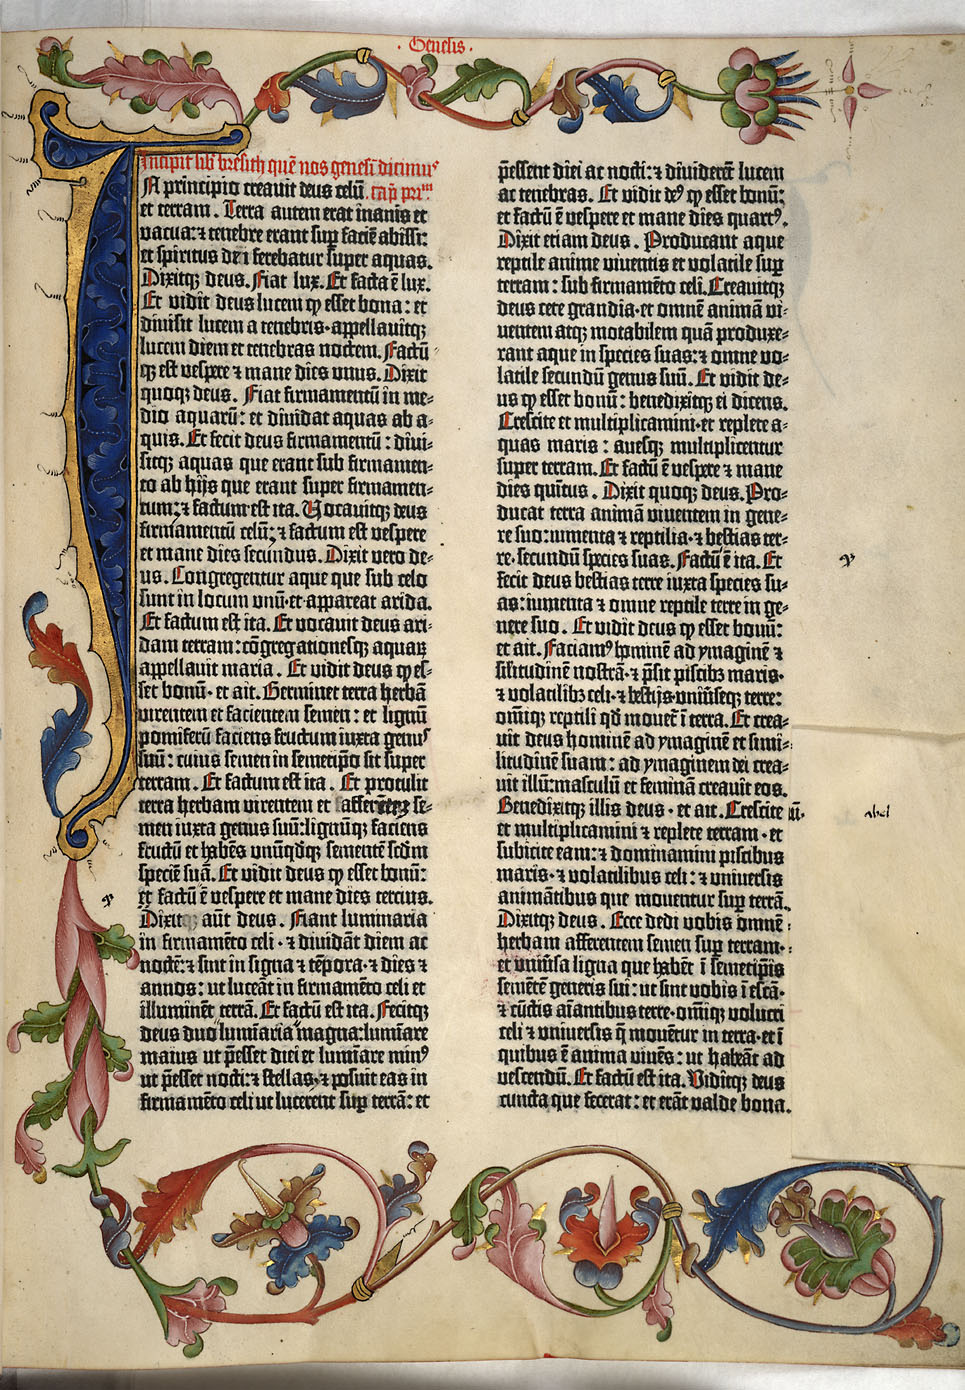 · Genesis ·
Incipit lib̄ bresith quē nos genesī dicimus
In principio creavit deus celū cap̄ prīm
et terram. Terra autem erat inanis et
vacua: ⁊ tenebre erant sup̄ faciē abissi:
et spiritus dei ferebatur super aquas.
Dixitq; deus. Fiat lux. Et facta ē lux.
Et vidit deus lucem ꝙ esset bona: et
divisit lucem a tenebris · appellavitq;
lucem diem et tenebras noctem. Factū
q; est vespere ⁊ mane dies unus. Dixit
quoq; deus. Fiat firmamentū in me-
dio aquarū: et dividat aquas ab a-
quis. Et fecit deus firmamentū: divi-
sitq; aquas que erant sub firmamen-
to ab hijs que erant super firmamen-
tum: ⁊ factum est ita. Vocavitq; deus
firmamentū celū: ⁊ factum est vespere
et mane dies secundus. Dixit vero de-
us. Congregentur aque que sub celo
sunt in locum unū · et appareat arida.
Et factum est ita. Et vocavit deus ari-
dam terram: cōgregationesq; aquarū
appellavit maria. Et vidit deus ꝙ es-
set bonū · et ait. Germinet terra herbā
virentem et facientem semen: et lignū
pomiferū faciens fructum iuxta genus
suū: cuius semen in semetipso sit super
terram. Et factum est ita. Et protulit
terra herbam virentem et afferētem se-
men iuxta genus suū: lignūq; faciens
fructū et habēs unūqdq; sementē scdm
speciē suā. Et vidit deus ꝙ esset bonū:
et factū ē vespere et mane dies tercius.
Dixitq; aūt deus. Fiant luminaria
in firmamēto celi · ⁊ dividāt diem ac
noctē: ⁊ sint in signa ⁊ tēpora · ⁊ dies ⁊
annos: ut luceāt in firmamēto celi et
illuminēt terrā. Et factū est ita. Fecitq;
deus duo lumīaria magna: lumīare
maius ut p̄esset diei et lumīare minꝰ
ut p̄esset nocti: ⁊ stellas · ⁊ posuit eas in
firmamēto celi ut lucerent sup̄ terrā: et
p̄essent diei ac nocti: ⁊ dividerēt lucem
ac tenebras. Et vidit deꝰ ꝙ esset bonū:
et factū ē vespere et mane dies quartꝰ.
Dixit etiam deus. Producant aque
reptile anime viventis et volatile sup̄
terram: sub firmamēto celi. Creavitq;
deus cete grandia · et omnē animā vi-
ventem atq; motabilem quā produxe-
rant aque in species suas: ⁊ omne vo-
latile secundū genus suū. Et vidit de-
us ꝙ esset bonū: benedixitq; ei dicens.
Crescite et multiplicamini · et replete a-
quas maris: avesq; multiplicentur
super terram. Et factū ē vespere ⁊ mane
dies quītus. Dixit quoq; deus. Pro-
ducat terra animā viventem in gene-
re suo: iumenta ⁊ reptilia · ⁊ bestias ter-
re · secundū species suas. Factū ē ita. Et
fecit deus bestias terre iuxta species su-
as: iumenta ⁊ omne reptile terre in ge-
nere suo. Et vidit deus ꝙ esset bonū:
et ait. Faciamꝰ hominē ad ymaginē ⁊
silitudinē nostrā · ⁊ p̄sit piscibz maris ·
⁊ volatilibz celi · ⁊ bestijs · univseq; terre:
om̄iq; reptili qd movet̄ ī terra. Et crea-
vit deus hominē ad ymaginē et simi-
litudinē suam: ad ymaginem dei crea-
vit illū: masculū et feminā creavit eos.
Benedixitq; illis deus · et ait. Crescite
et multiplicamini ⁊ replete terram · et
subicite eam: ⁊ dominamini piscibus
maris · ⁊ volatilibus celi: ⁊ universis
animātibus que moventur sup̄ terrā.
Dixitq; deus. Ecce dedi vobis omnē
herbam afferentem semen sup̄ terram ·
et univsa ligna que habēt ī semetip̄is
sementē generis sui: ut sint vobis ī escā ·
⁊ cūctis aīantibus terre · om̄iq; volucri
celi ⁊ universis q̄ movētur in terra · et ī
quibus ē anima vivēs: ut habeāt ad
vescendū. Et factū est ita. Viditq; deus
cuncta que fecerat: et erāt valde bona.